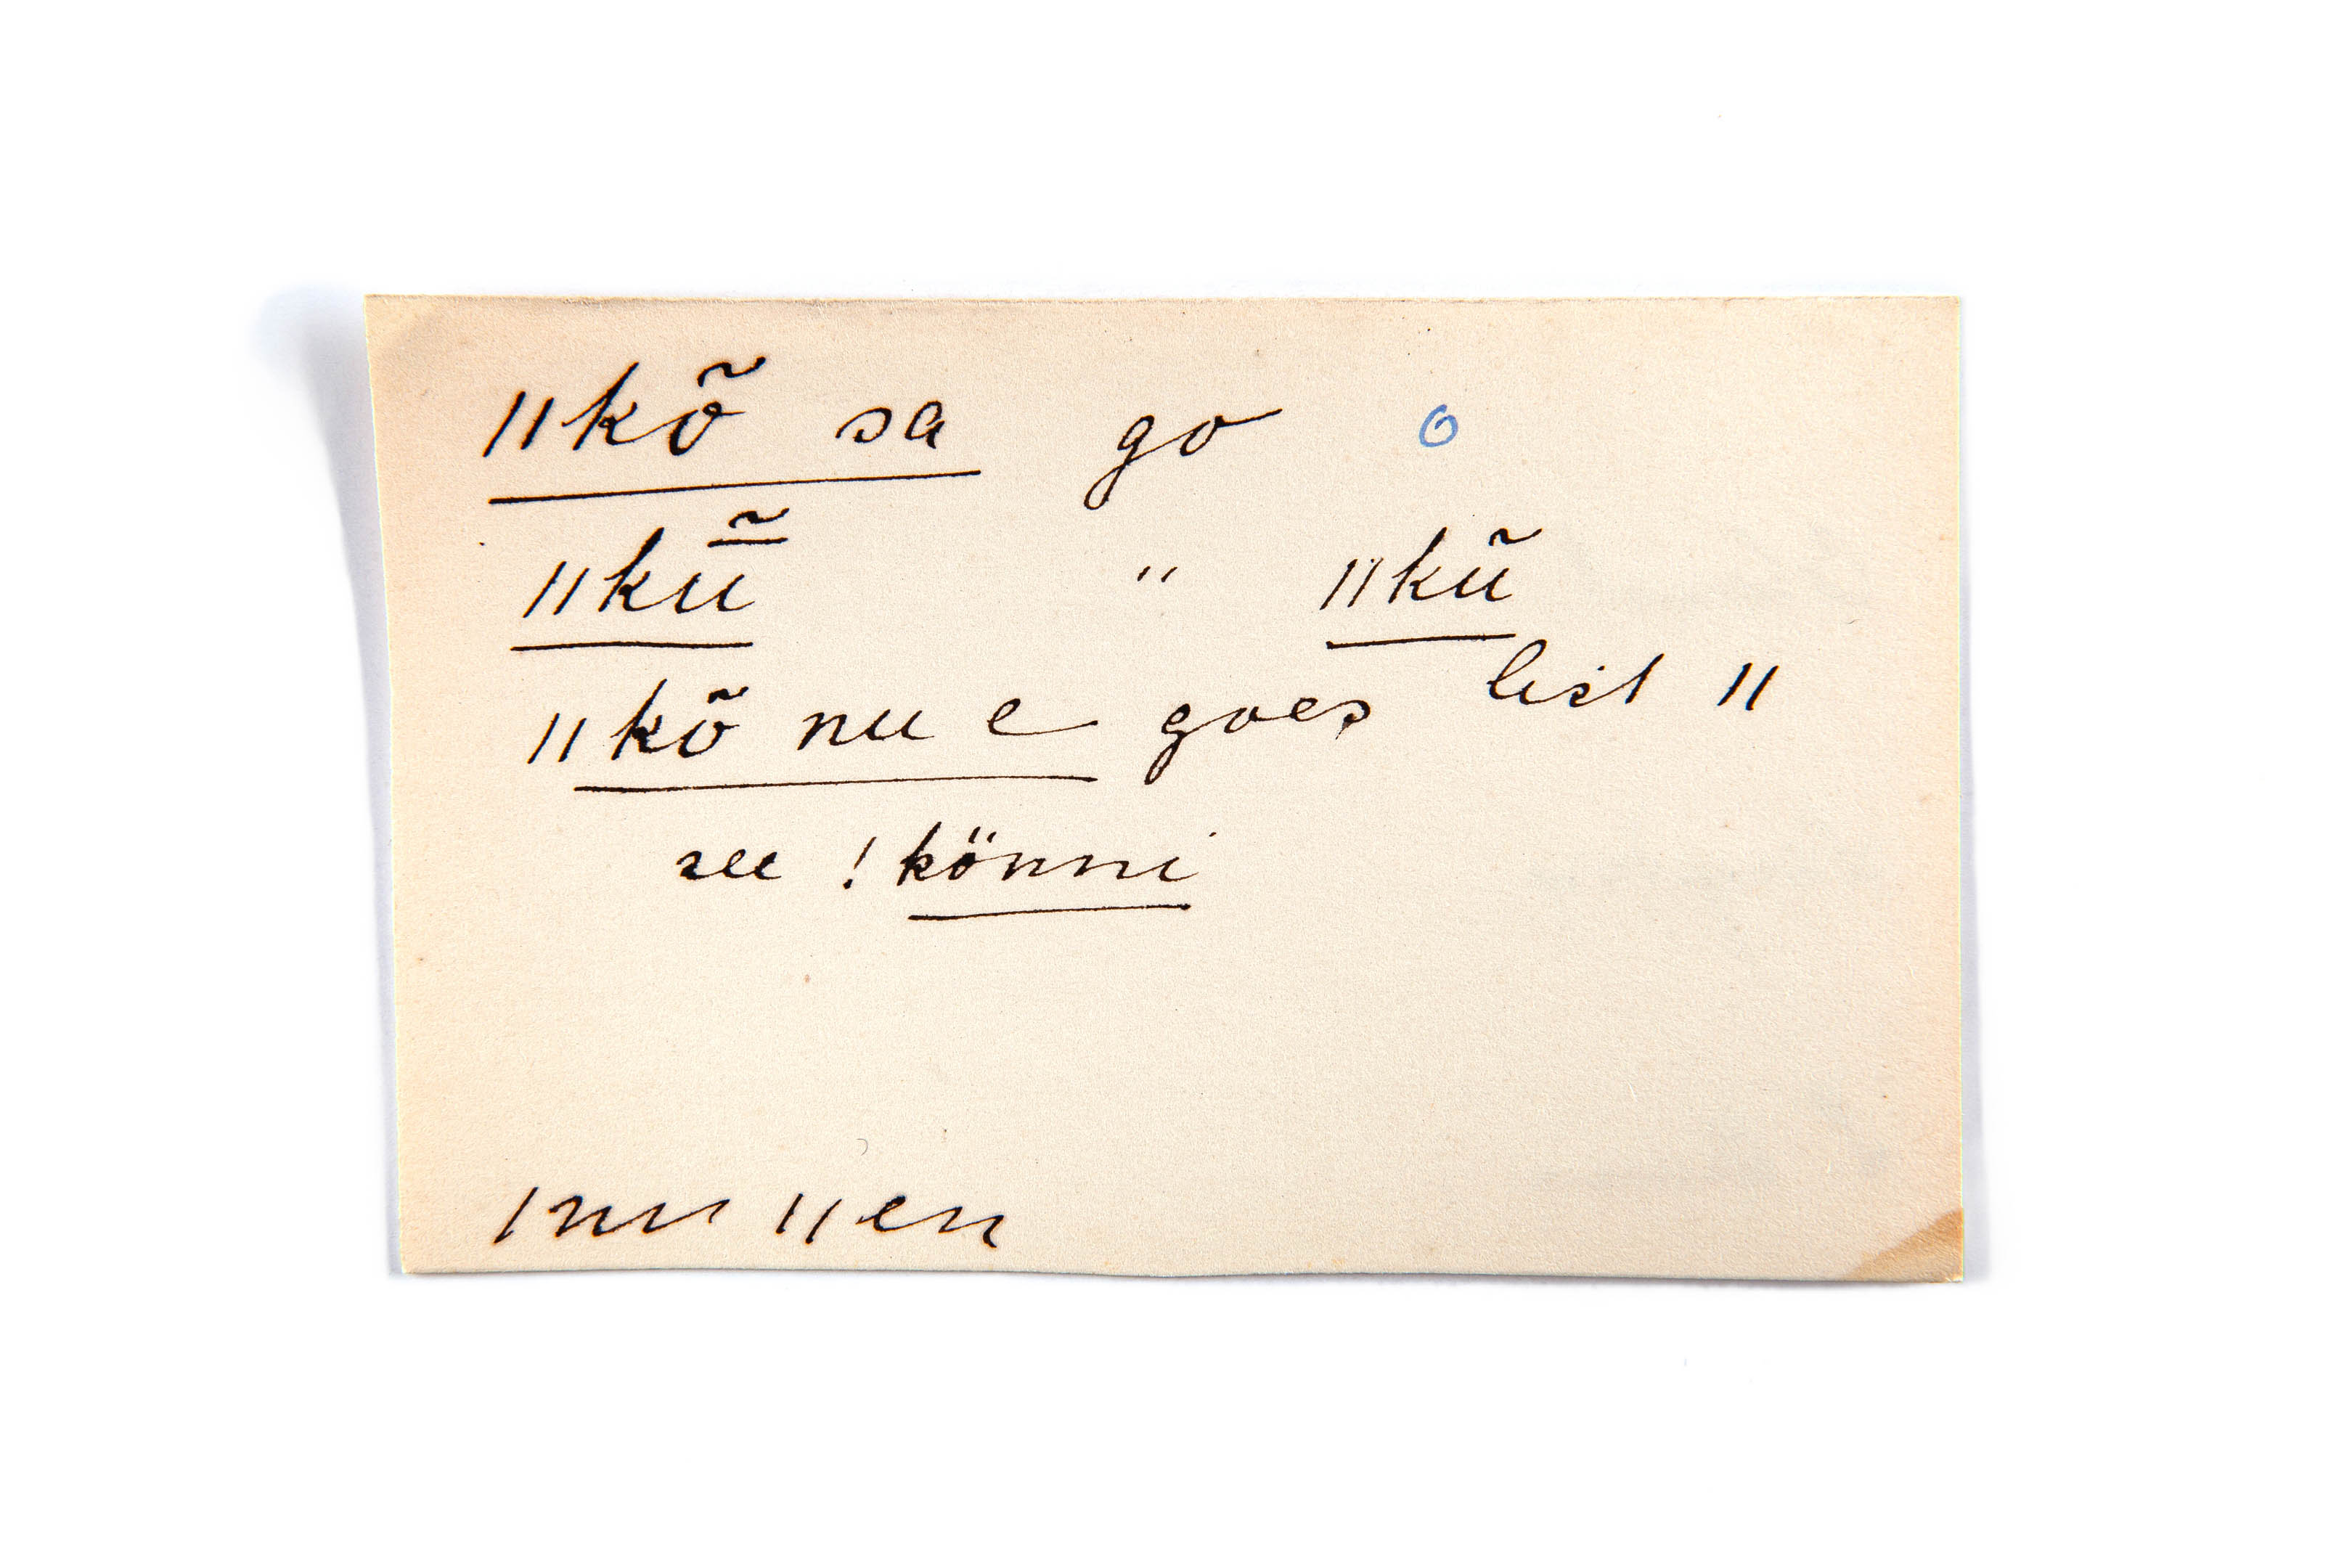 ||kõ sa go o
||kṹ " ||kũ
||kõ nu e goes list ||
see !könni
|nu ||en